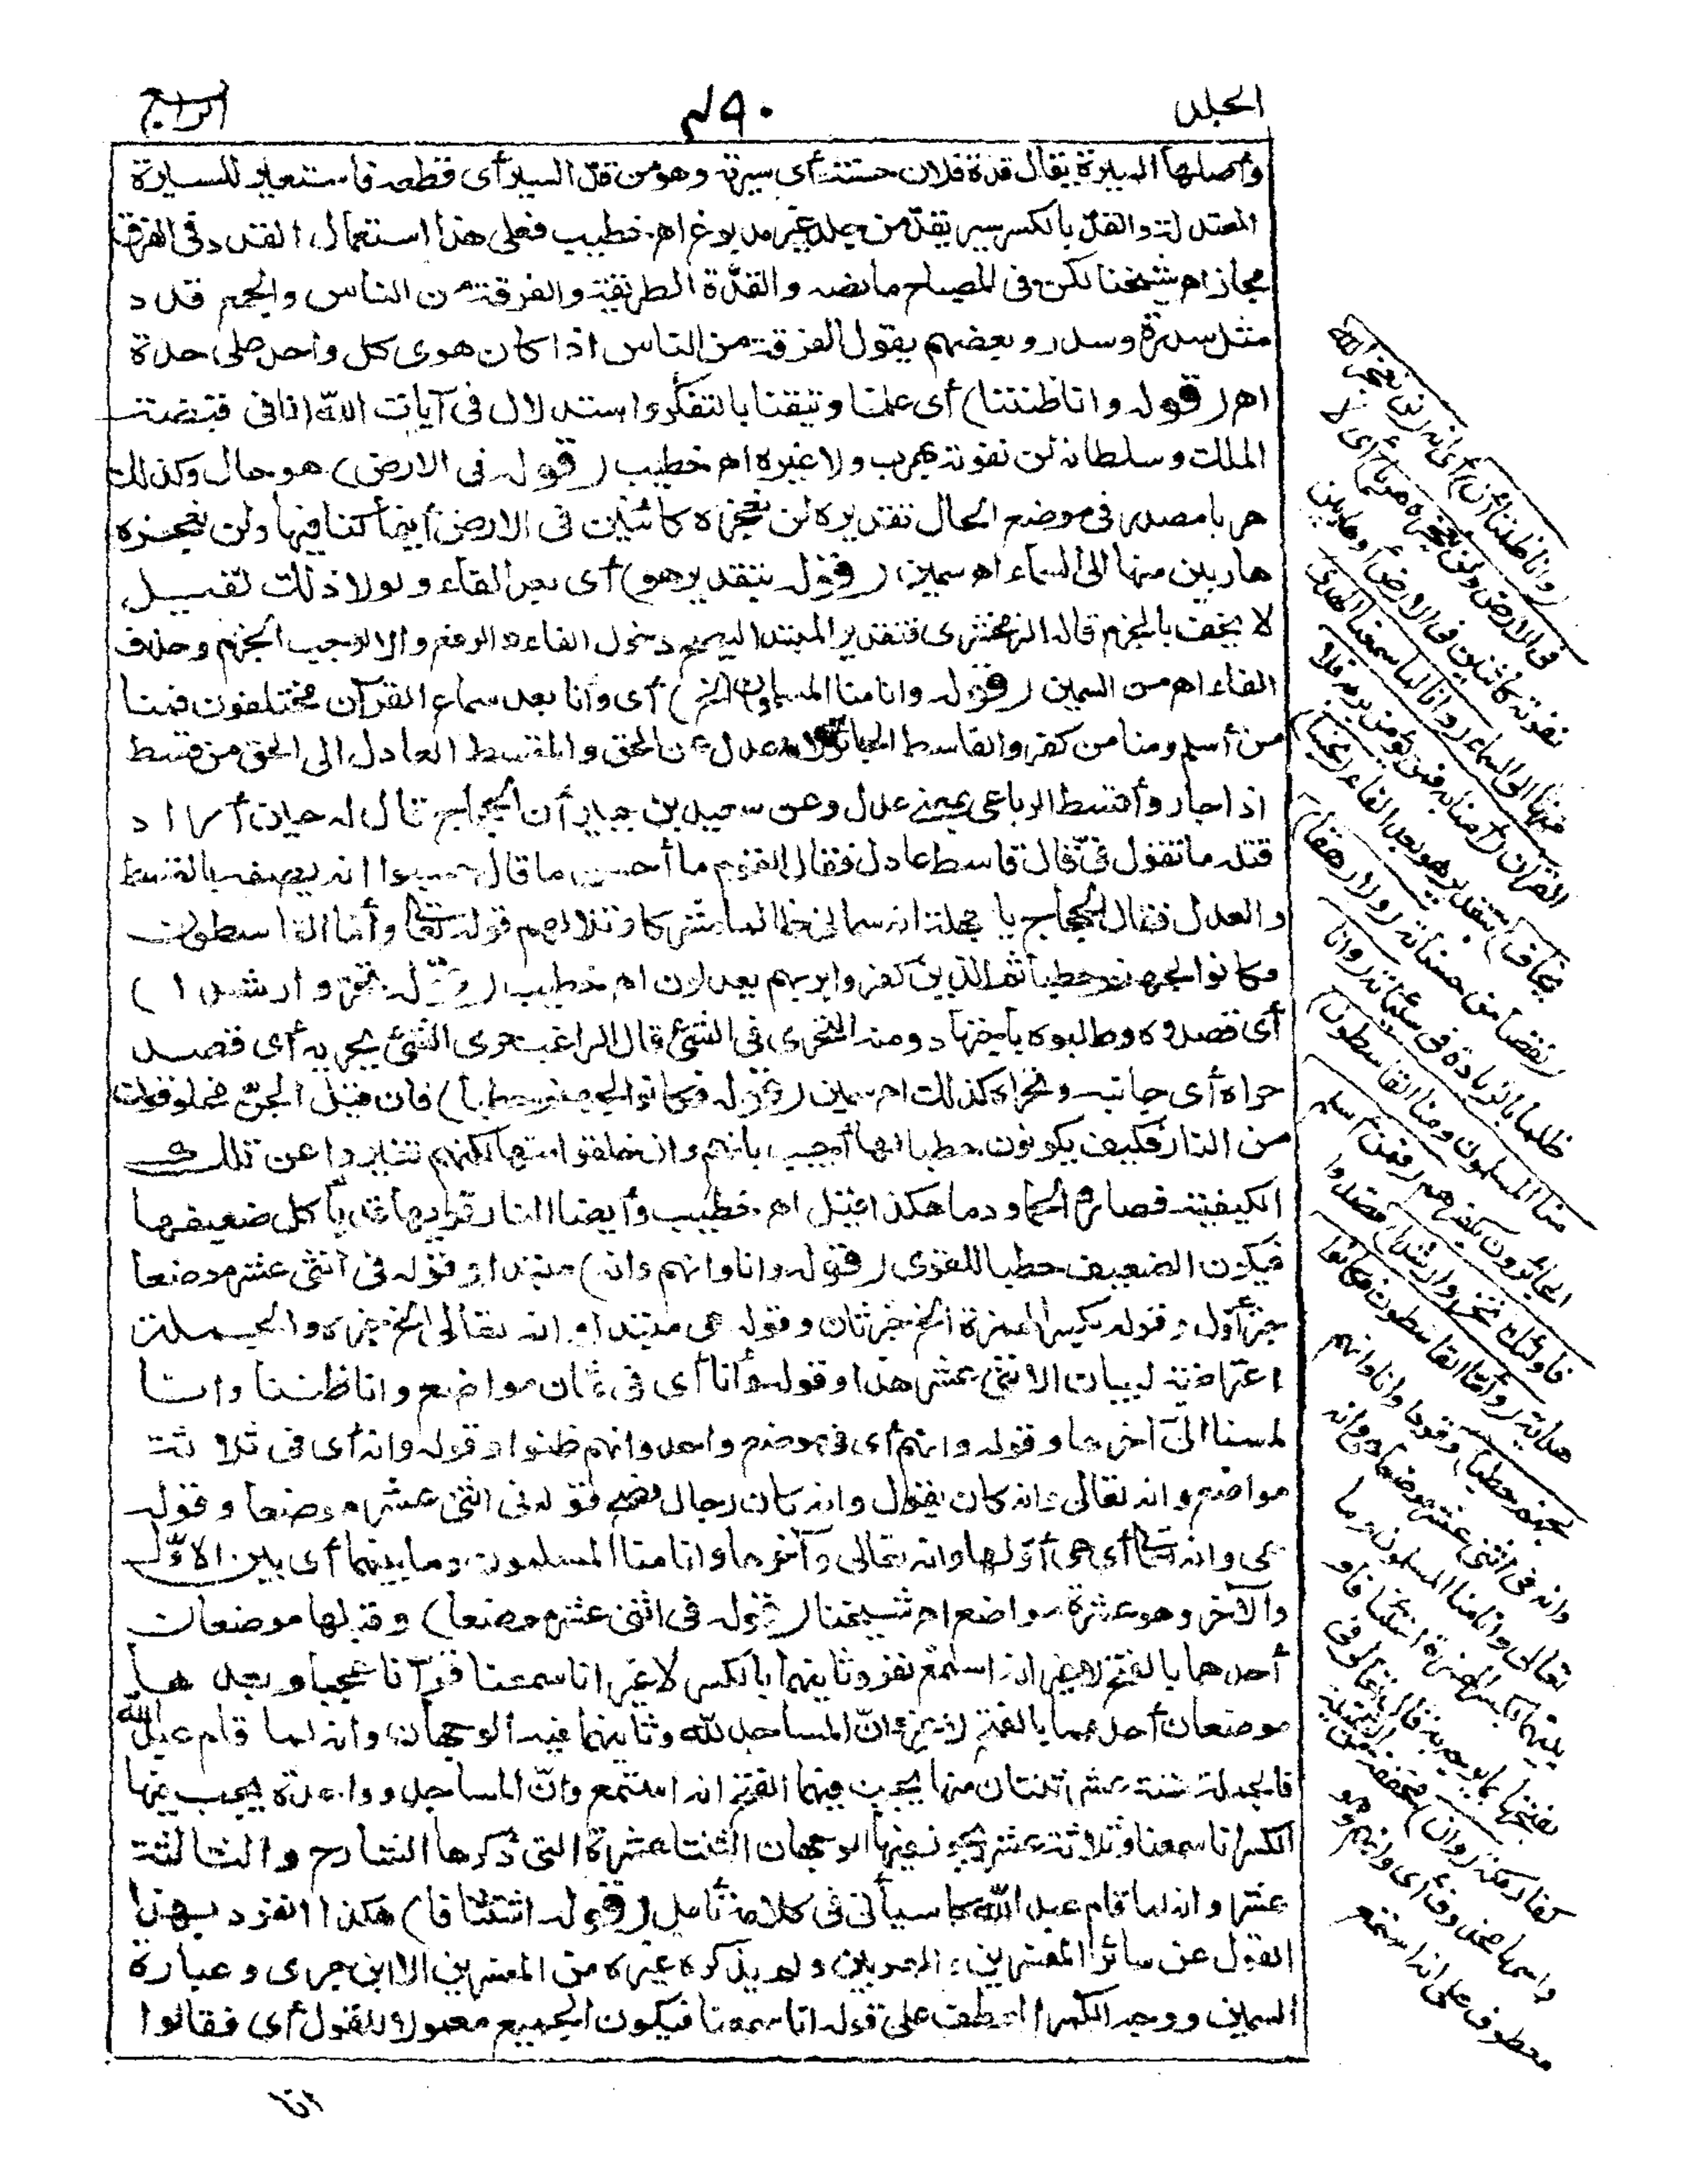 الجلد
٤٩٠
الرابع
وأصلها السيرة يقال قدة فلان حسنة أى سيرته وهو من قدّ السير أى قطعه فاستعير للسيرة
المعتدلة والقدّ بالكسر سير يقدّ من جلد غير مدبوغ اهـ خطيب فعلى هذا استعمال القدد فى الفرق
مجاز اهـ شيخنا لكن فى المصباح ما نصه والقدّة الطريقة والفرقة من الناس والجمع قدد
مثل سدرة وسدر وبعضهم يقول الفرقة من الناس اذا كان هوى كل واحد على حدة
اهـ (قوله وانا ظننا) أى علمنا وتيقنا بالتفكر واستدلال فى آيات الله انا فى قبضة
الملك وسلطانه لن نفوته بهرب ولا غيره اهـ خطيب (قوله فى الارض) هو حال وكذلك
هربا مصدر فى موضع الحال تقديره لن نعجزه كائنين فى الارض أينما كنا فيها ولن نعجزه
هاربين منها الى السماء اهـ سمين (قوله بتقدير هو) أى بعد الفاء ولولا ذلك لقيل
لا يخف بالجزم قاله الزمخشرى فتقدير المبتدا ليصح دخول الفاء والرفع والا لوجب الجزم وحذف
الفاء اهـ من السمين (قوله وانا منا المسلمون الخ) أى وأنا بعد سماع القرآن مختلفون فمنا
من أسلم ومنا من كفر والقاسط الجائر لانه عدل عن الحق والمقسط العادل الى الحق من قسط
اذا جار وأقسط الرباعى بمعنى عدل وعن سعيد بن جبير أن الحجاج قال له حين أراد
قتله ما تقول فىّ قال قاسط عادل فقال القوم ما أحسن ما قال حسبوا انه يصفه بالقسط
والعدل فقال الحجاج يا جهلة انه سمانى ظالما مشركا وتلا لهم قوله تعالى وأما القاسطون
فكانوا لجهنم حطبا ثم الذين كفروا بربهم يعدلون اهـ خطيب (قوله تحرّوا رشدا)
أى قصدوه وطلبوه باجتهاد ومنه التحرى فى الشئ قال الراغب حرى الشئ يحريه أى قصد
حراه أى جانبه وتحراه كذلك اهـ سمين (قوله فكانوا لجهنم حطبا) فان قيل الجنّ مخلوقون
من النار فكيف يكونون حطبا لها أجيب بانهم وان خلقوا منها لكنهم تغيروا عن تلك
الكيفية فصاروا لحما ودما هكذا قيل اهـ خطيب وأيضا النار قويها قد يأكل ضعيفها
فيكون الضعيف حطبا للقوى (قوله وانا وانهم وانه) مبتدا وقوله فى اثنى عشر موضعا
خبر أول وقوله بكسر الهمزة الخ خبر ثان وقوله هى مبتدا وانه تعالى الخ خبره والجملة
اعتراضية لبيان الاثنى عشر هذا وقوله وأنا أى فى ثمان مواضع وانا ظننا وانا
لمسنا الى آخرها وقوله وانهم أى فى موضع واحد وانهم ظنوا وقوله وانه أى فى ثلاثة
مواضع وانه تعالى وانه كان يقول وانه كان رجال فقوله فى اثنى عشر موضعا وقوله
هى وانه تعالى أى هى أوّلها وانه تعالى وآخرها وانا منا المسلمون وما بينهما أى بين الاوّل
والآخر وهو عشرة مواضع اهـ شيخنا (قوله فى اثنى عشر موضعا) وقبلها موضعان
أحدهما بالفتح لا غير انه استمع نفر وثانيهما بالكسر لا غير انا سمعنا قرآنا عجبا وبعدها
موضعان أحدهما بالفتح لا غير وانّ المساجد لله وثانيهما فيه الوجهان وانه لما قام عبد الله
فالجملة ستة عشر اثنتان منها يجب فيهما الفتح انه استمع وانّ المساجد وواحدة يجب فيها
الكسر انا سمعنا وثلاثة عشر يجوز فيها الوجهان الثنتا عشرة التى ذكرها الشارح والثالثة
عشر وانه لما قام عبد الله كما سيأتى فى كلامه تأمل (قوله استئنافا) هكذا انفرد بهذا
القول عن سائر المفسرين والمعربين ولم يذكره غيره من المفسرين الا ابن جرى وعبارة
السمين ووجه الكسر العطف على قوله انا سمعنا فيكون الجميع معمولا للقول أى فقالوا
انا
(وانا ظننا أن) أى انه (لن نعجز الله
فى الارض ولن نعجزه هربا) أى لا
نفوته كائنين فى الارض أو هاربين
منها الى السماء (وانا لما سمعنا الهدى)
القرآن (آمنا به فمن يؤمن بربه فلا
يخاف) بتقدير هو بعد الفاء (بخسا)
نقصا من حسناته (ولا رهقا)
ظلما بالزيادة فى سيئاته (وانا
منا المسلمون ومنا القاسطون)
الجائرون بكفرهم (فمن أسلم
فاولئك تحرّوا رشدا) قصدوا
هداية (وأمّا القاسطون فكانوا
لجهنم حطبا) وقودا وانا وانهم
وانه فى اثنى عشر موضعا هى وانه
تعالى وانا منا المسلمون وما
بينهما بكسر الهمزة استئنافا و
بفتحها بما يوجه به قال تعالى فى
كفار مكة (وان) مخففة من الثقيلة
واسمها محذوف أى وانهم وهو
معطوف على انه استمع